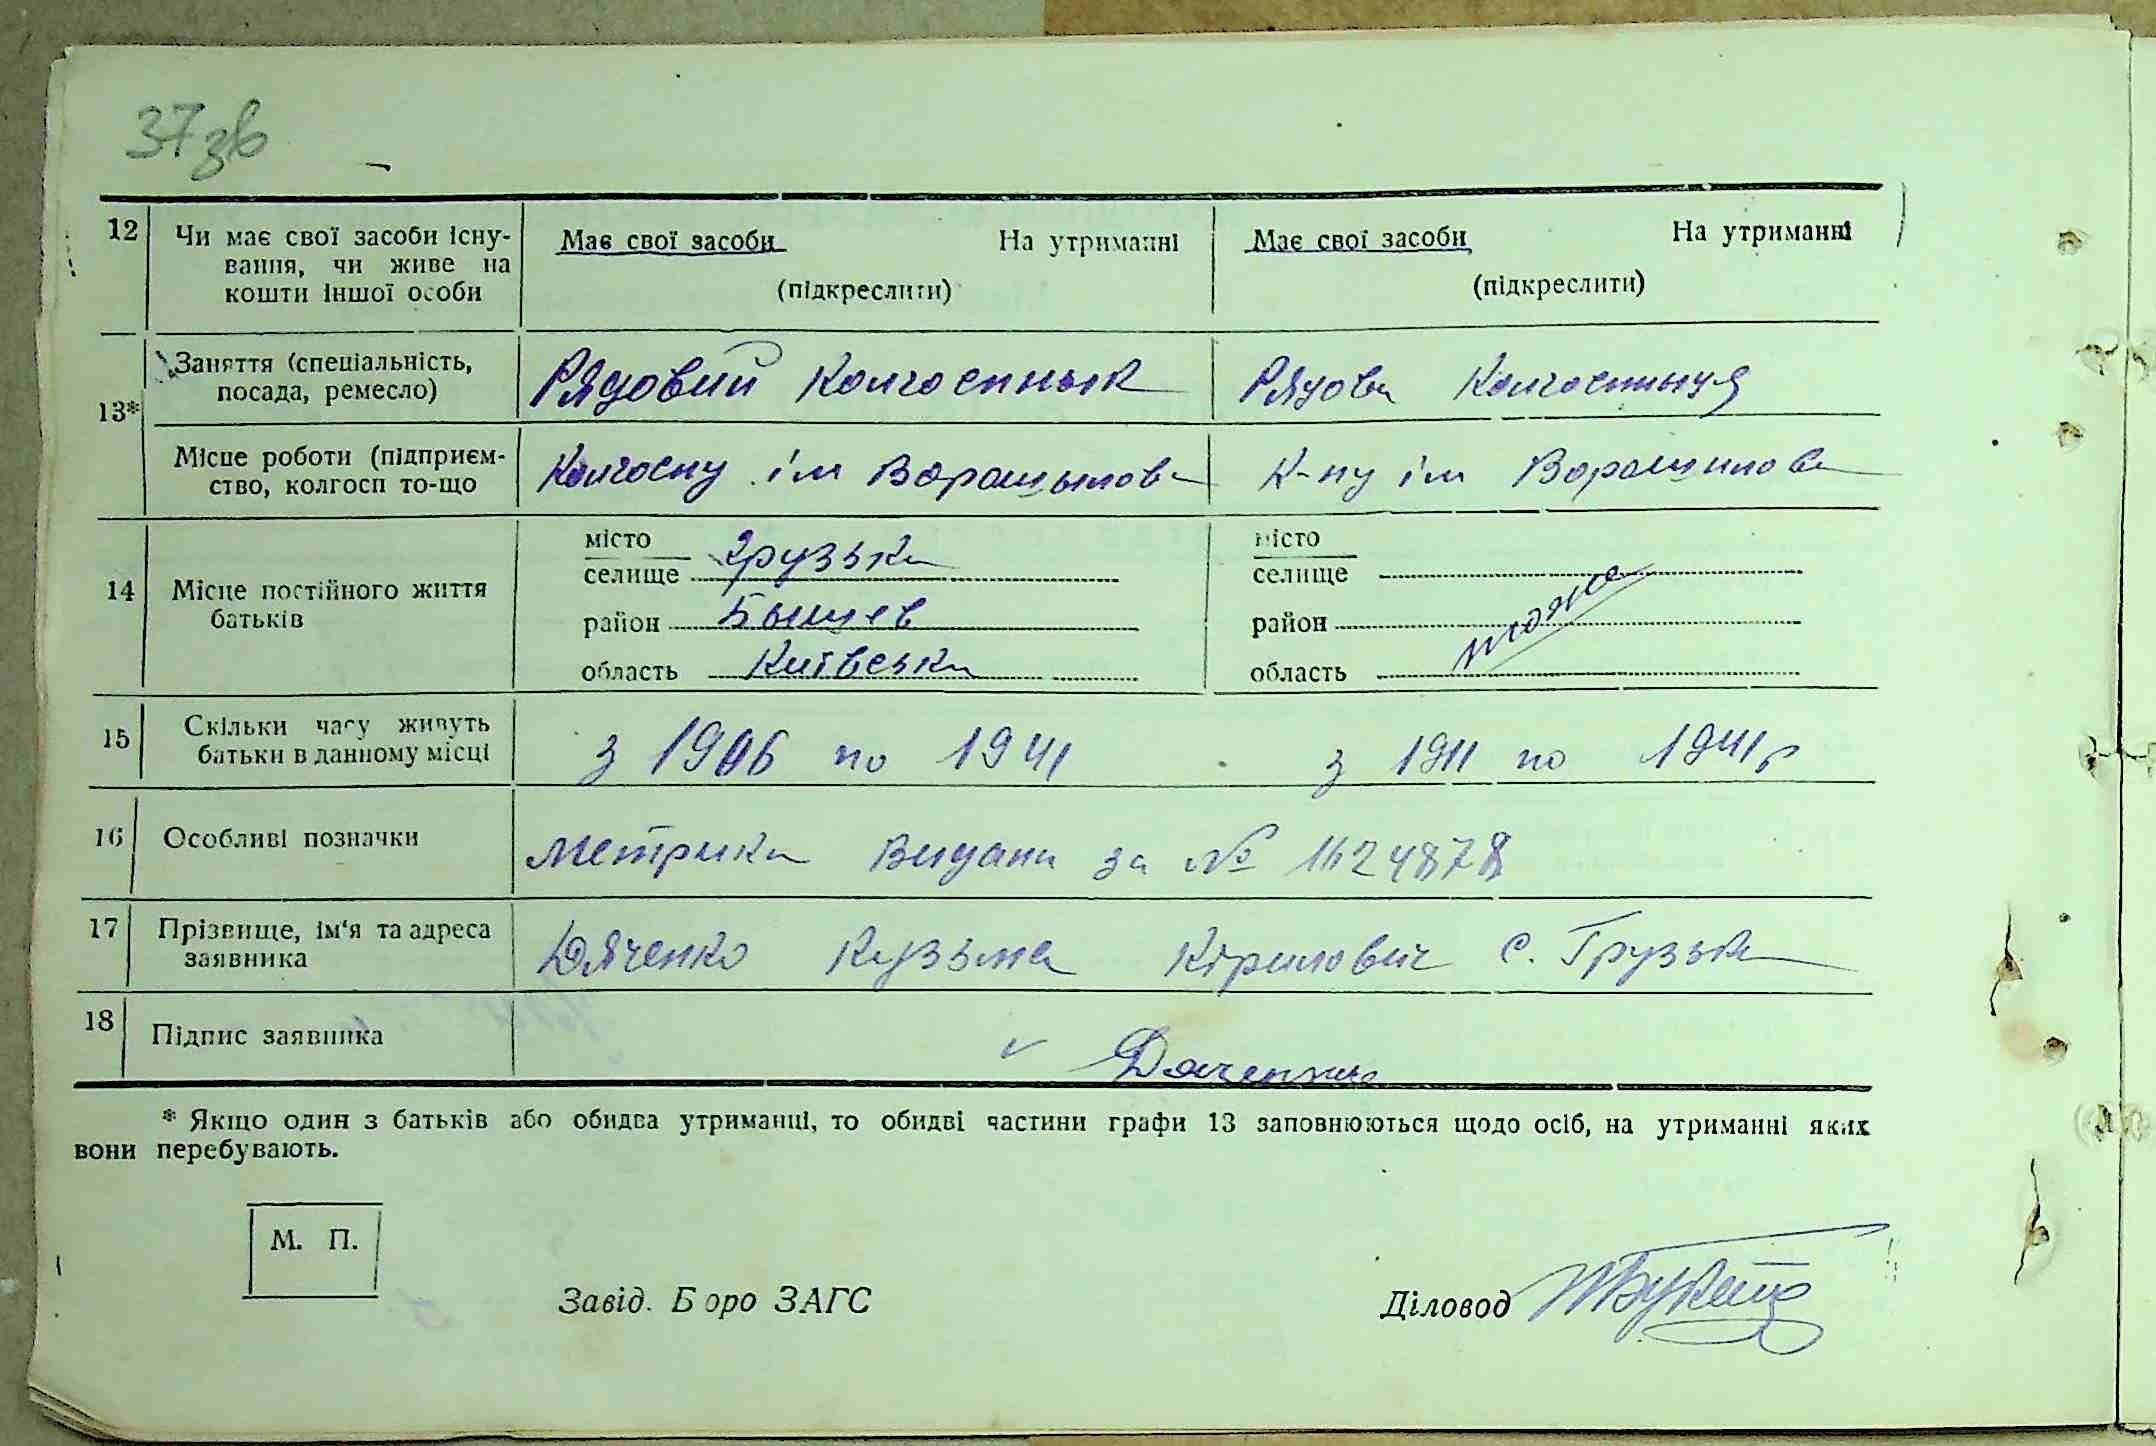 37зв
12 Чи має свої засоби існу- Має свої засоби На утриманні Має свої засоби На утриманні
вання, чи живе на
кошти іншої особи (підкреслити) (підкреслити)
13* Заняття (спеціальність,
посада, ремесло) Рядовий Колгоспнык Рядова Колгоспниця
Місце роботи (підприєм-
ство, колгосп то-що Колгоспу ім Ворошылова К-пу ім Ворошилова
14 Місце постійного життя
батьків
місто
селище Грузька
район Бышев
область Київська
місто
селище
район тоже
область
15 Скільки часу живуть
батьки в данному місці з 1906 по 1941 з 1911 по 1941р
16 Особливі позначки Метрика Видана за № 1624878
17 Прізвище, ім'я та адреса
заявника Дяченко Кузьма Кірилович с. Грузька
18 Підпис заявника Дяченко
* Якщо один з батьків або обидва утриманці, то обидві частини графи 13 заповнюються щодо осіб, на утриманні яких
вони перебувають.
М. П.
Завід. Бюро ЗАГС Діловод